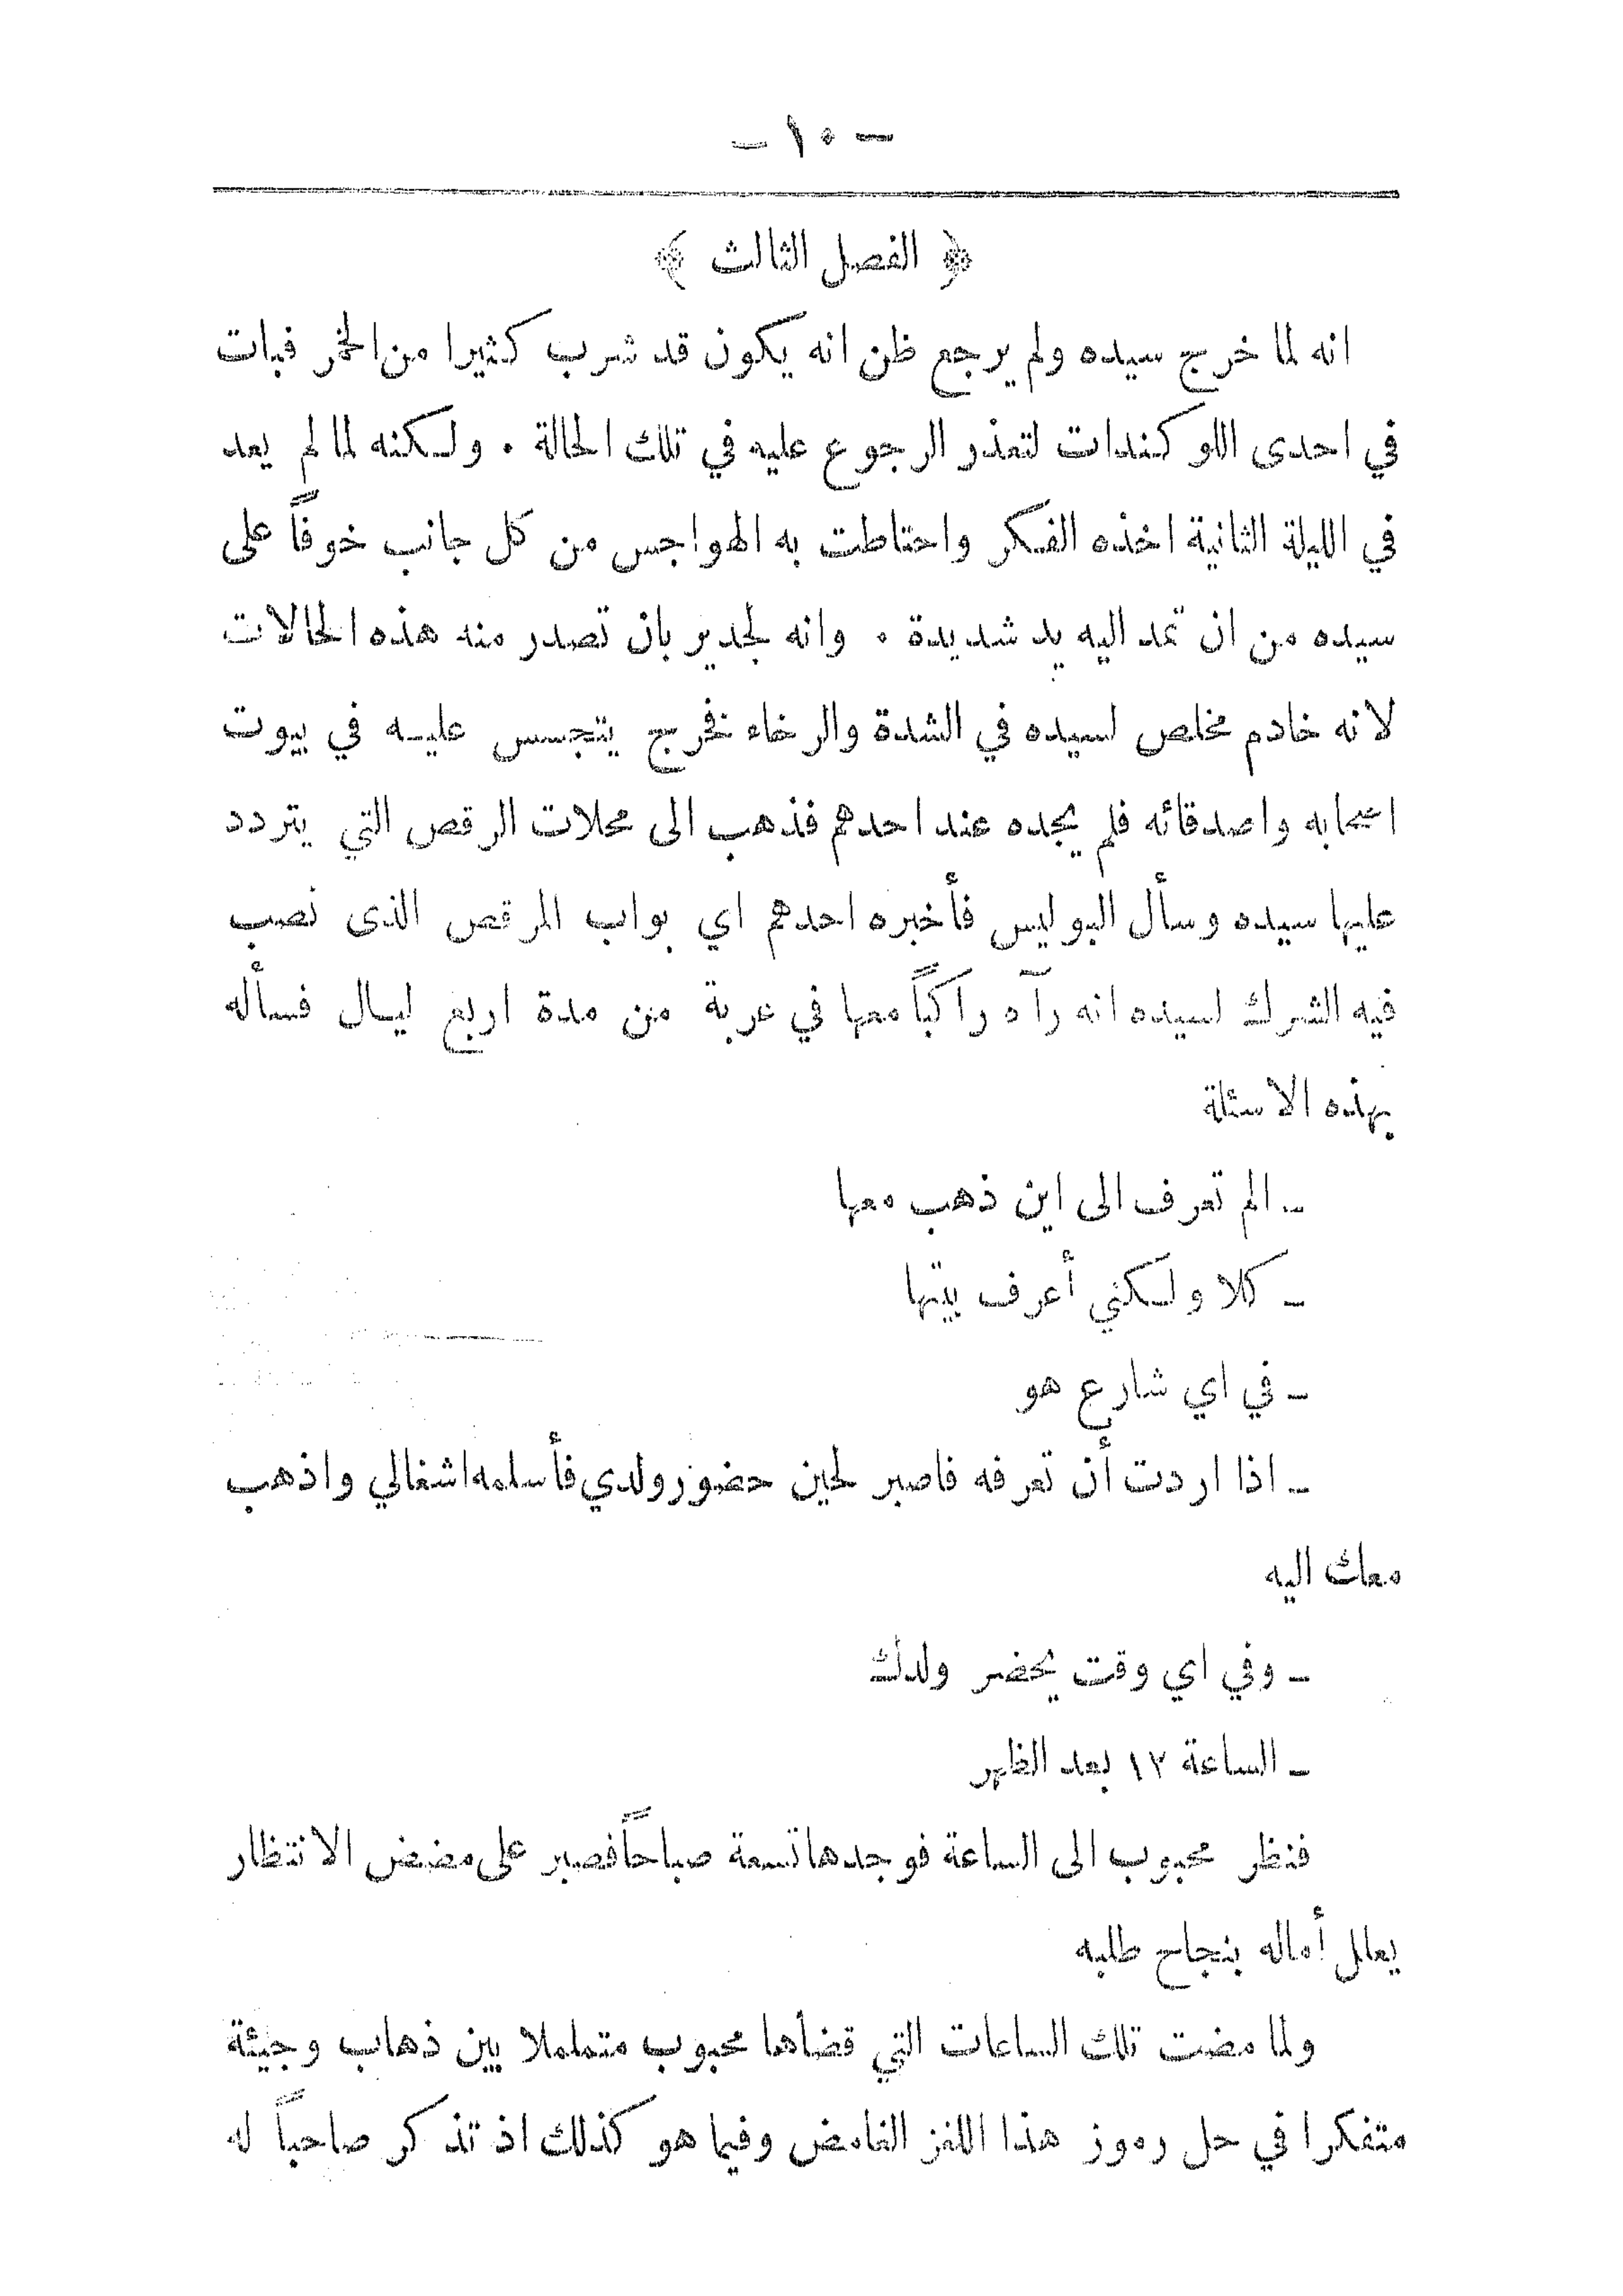 — ١٠ —
﴿ الفصل الثالث ﴾
انه لما خرج سيده ولم يرجع ظن انه يكون قد شرب كثيرا من الخمر فبات
في احدى اللوكندات لتعذر الرجوع عليه في تلك الحالة . ولكنه لما لم يعد
في الليلة الثانية اخذه الفكر واحتاطت به الهواجس من كل جانب خوفاً على
سيده من ان تمد اليه يد شديدة . وانه لجدير بان تصدر منه هذه الحالات
لانه خادم مخلص لسيده في الشدة والرخاء فخرج يتجسس عليه في بيوت
اصحابه واصدقائه فلم يجده عند احدهم فذهب الى محلات الرقص التي يتردد
عليها سيده وسأل البوليس فأخبره احدهم اي بواب المرقص الذى نصب
فيه الشرك لسيده انه رآه راكباً معها في عربة من مدة اربع ليال فسأله
بهذه الاسئلة
ـ الم تعرف الى اين ذهب معها
ـ كلا ولكني أعرف بيتها
ـ في اي شارع هو
ـ اذا اردت أن تعرفه فاصبر لحين حضور ولدي فأسلمه اشغالي واذهب
معك اليه
ـ وفي اي وقت يحضر ولدك
ـ الساعة ١٢ بعد الظهر
فنظر محبوب الى الساعة فوجدها تسعة صباحاً فصبر على مضض الانتظار
يعلل أماله بنجاح طلبه
ولما مضت تلك الساعات التي قضاها محبوب متململا بين ذهاب وجيئة
متفكرا في حل رموز هذا اللغز الغامض وفيما هو كذلك اذ تذكر صاحباً له